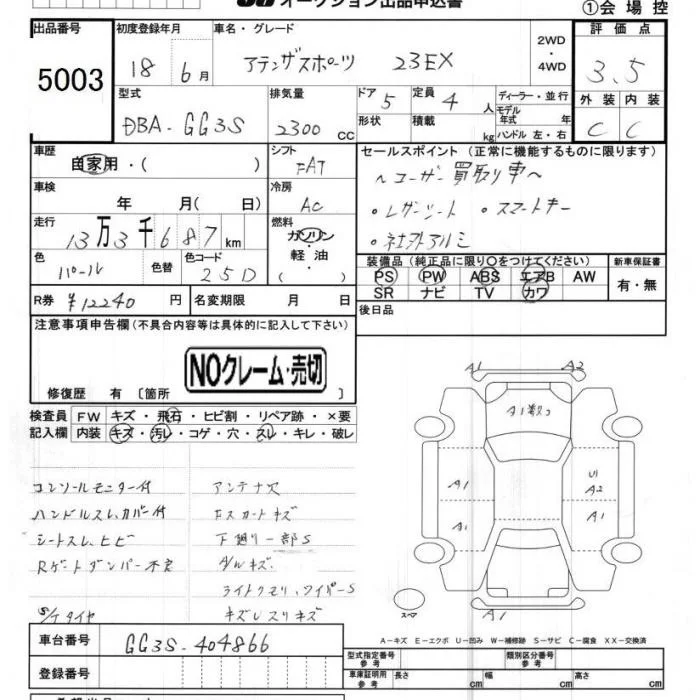 オークション出品申込書 ①会場控
出品番号 初度登録年月 車名・グレード 2WD ・ 4WD 評価点
5003 18 年 6月 アテンザスポーツ 23EX 3.5
型式 排気量 ドア 5 定員 4 人 ディーラー・並行 外装 内装
DBA-GG3S 2300 CC 形状 積載 kg モデル年式 年 ハンドル 左・右 C C
車歴 自家用・( ) シフト FAT セールスポイント (正常に機能するものに限ります)
車検 年 月( 日) 冷房 AC 〜ユーザー買取り車〜
走行 13万3千687km 燃料 ガソリン ・レザーシート ・スマートキー
軽油 ・( ) ・社外アルミ
色 パール 色替 色コード 25D 装備品 (純正品に限り〇をつけてください) 新車保証書
PS PW ABS エアB AW 有・無
SR ナビ TV カワ
R券 ¥12240 円 名変期限 月 日 後日品
注意事項申告欄 (不具合内容等は具体的に記入して下さい)
NOクレーム・売切
修復歴 有 〔箇所 〕
検査員 FW キズ・飛石・ヒビ割・リペア跡・×要
記入欄 内装 キズ・汚レ・コゲ・穴・スレ・キレ・破レ
コンソールモニター付 アンテナ穴
ハンドルスレ、カバー付 Fスカートキズ
シートスレ、ヒビ 下廻り一部S
Rゲートダンパー不良 A/Wキズ
ライトクモリ、ワイパーS
S/Tタイヤ キズ、スリキズ
A1 A2
A1数コ
A1 U1 A2
A1 A1
スペア A1
A−キズ E−エクボ U−凹み W−補修跡 S−サビ C−腐食 XX−交換済
車台番号 GG3S-404866
登録番号
型式指定番号 参考 類別区分番号 参考
車庫証明用 参考 長さ cm 幅 cm 高さ cm